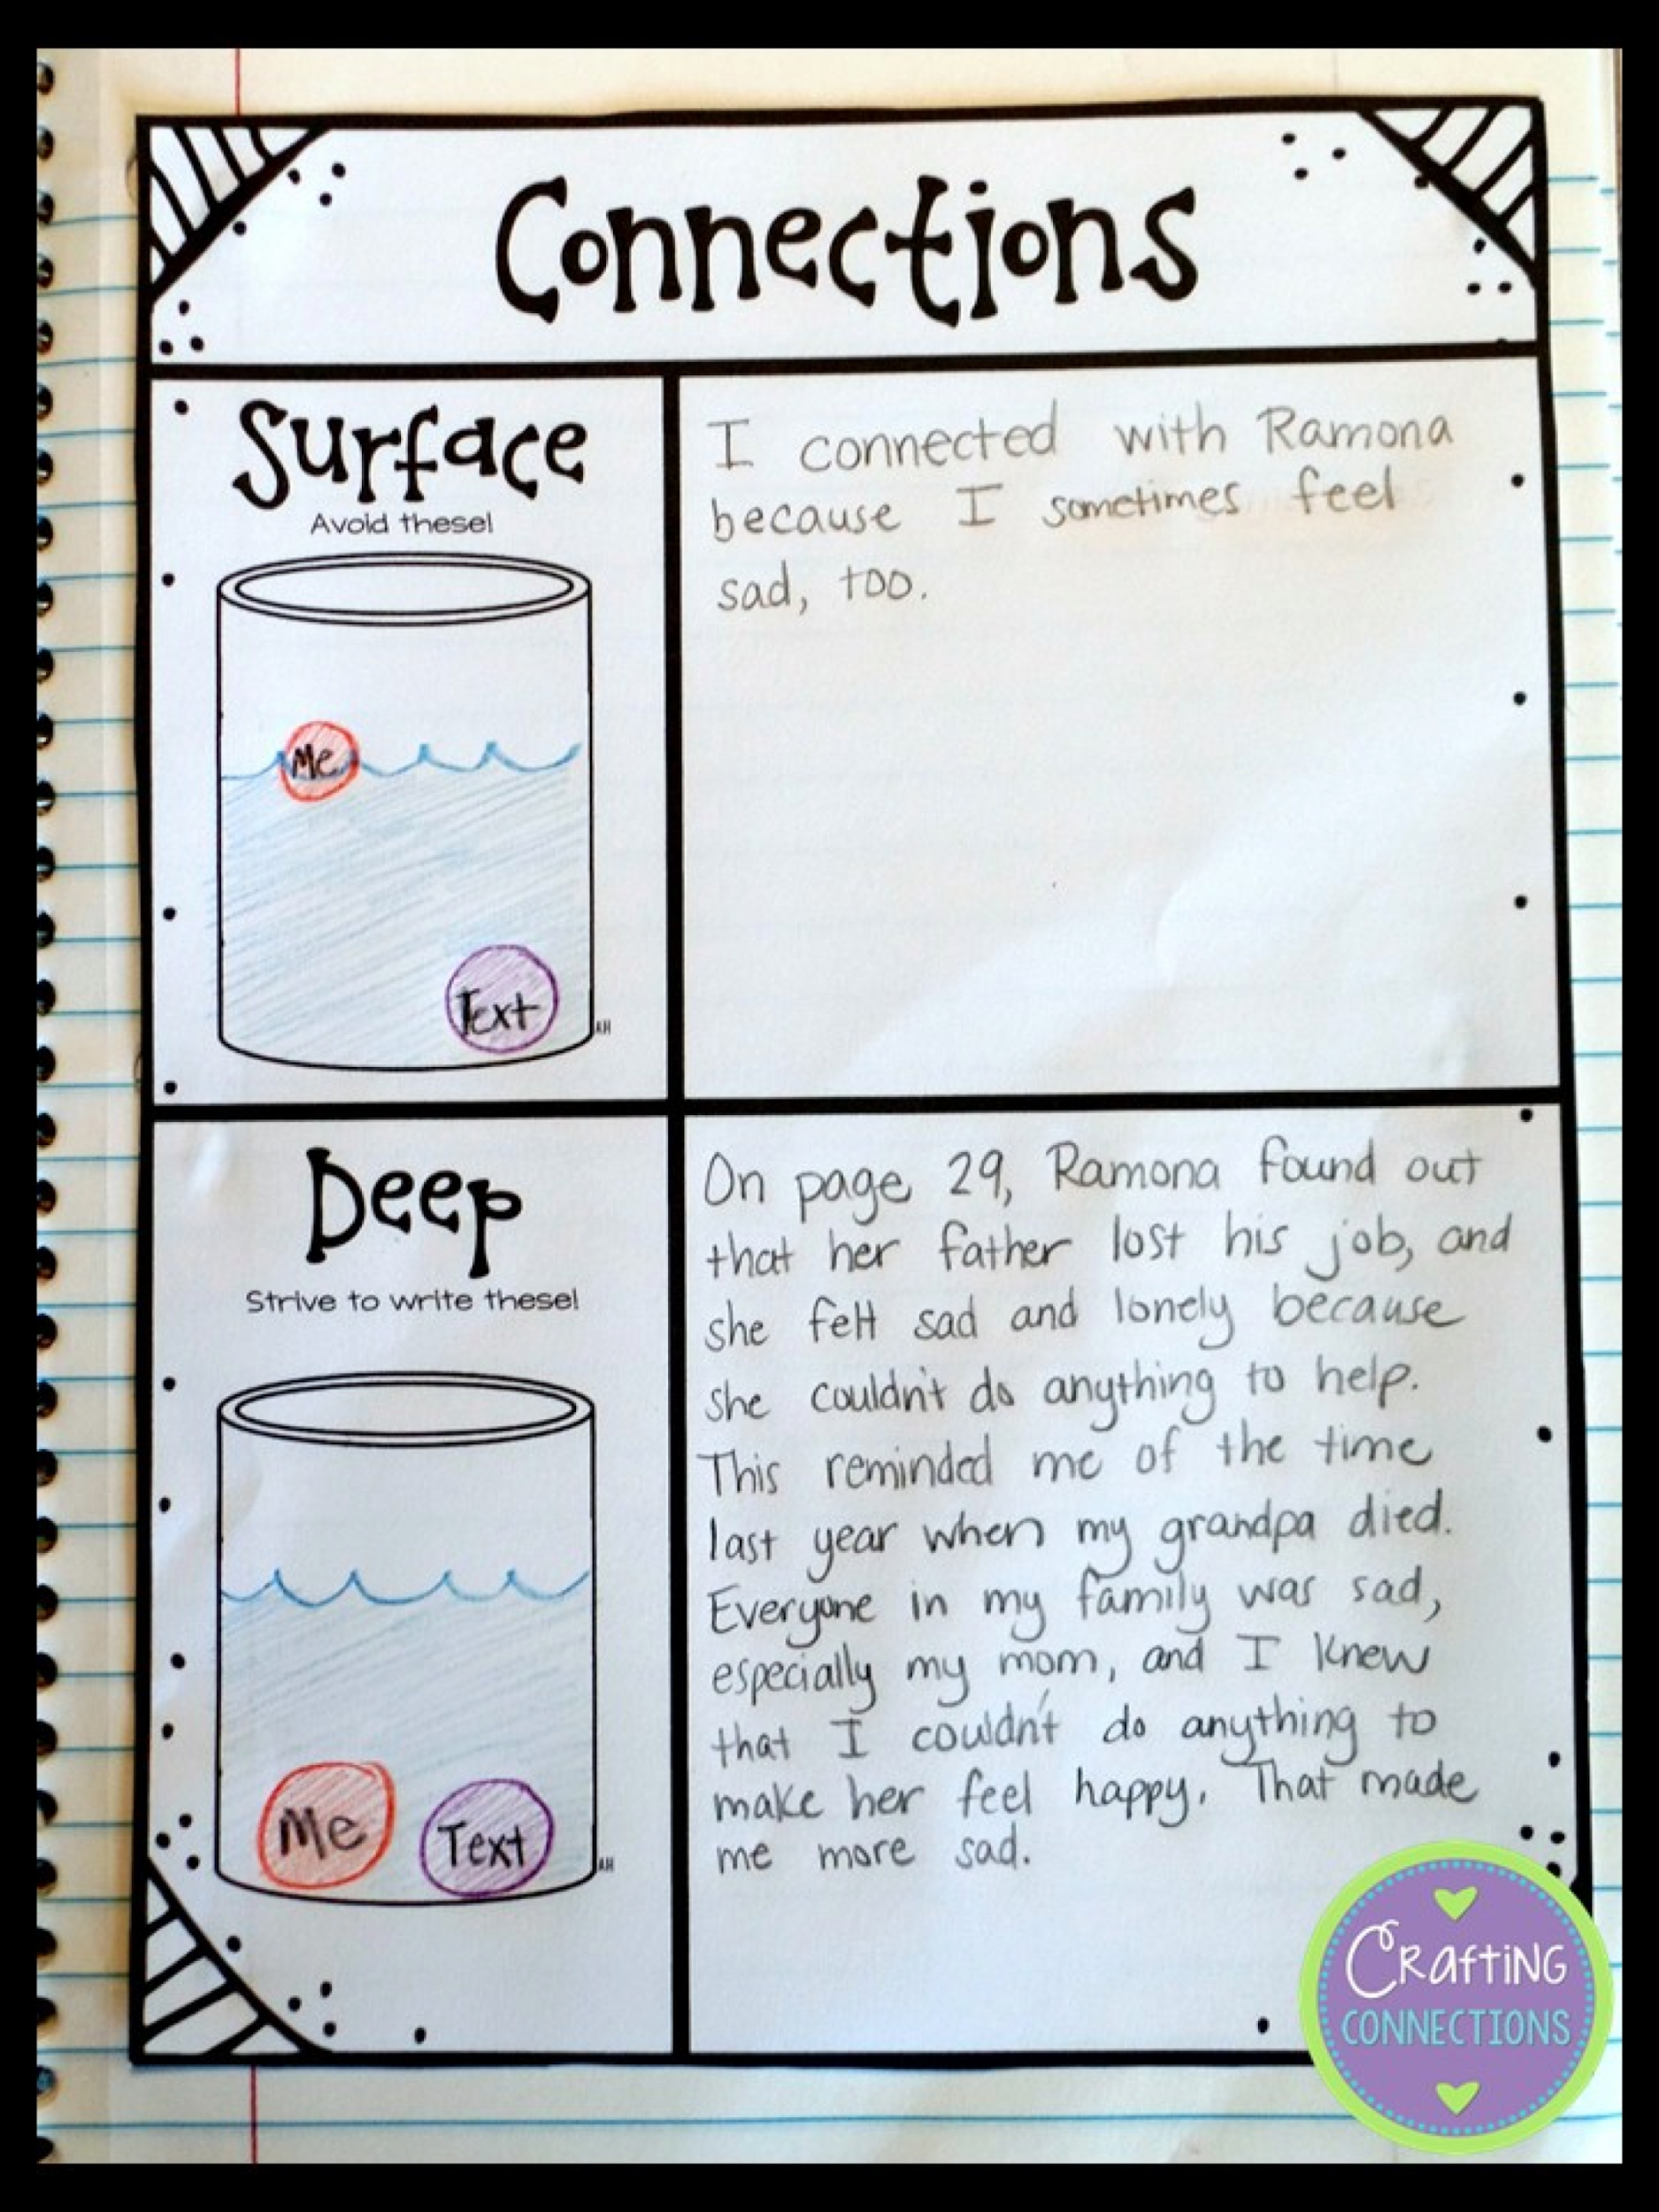 Connections
Surface
Avoid these!
Me
Text
AH
I connected with Ramona
because I sometimes feel
sad, too.
Deep
Strive to write these!
Me
Text
AH
On page 29, Ramona found out
that her father lost his job, and
she felt sad and lonely because
she couldn't do anything to help.
This reminded me of the time
last year when my grandpa died.
Everyone in my family was sad,
especially my mom, and I knew
that I couldn't do anything to
make her feel happy. That made
me more sad.
Crafting
CONNECTIONS